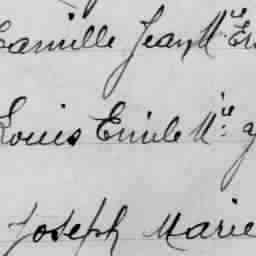 Camille Jean Mie Er
Louis Emile Mie
Joseph Marie